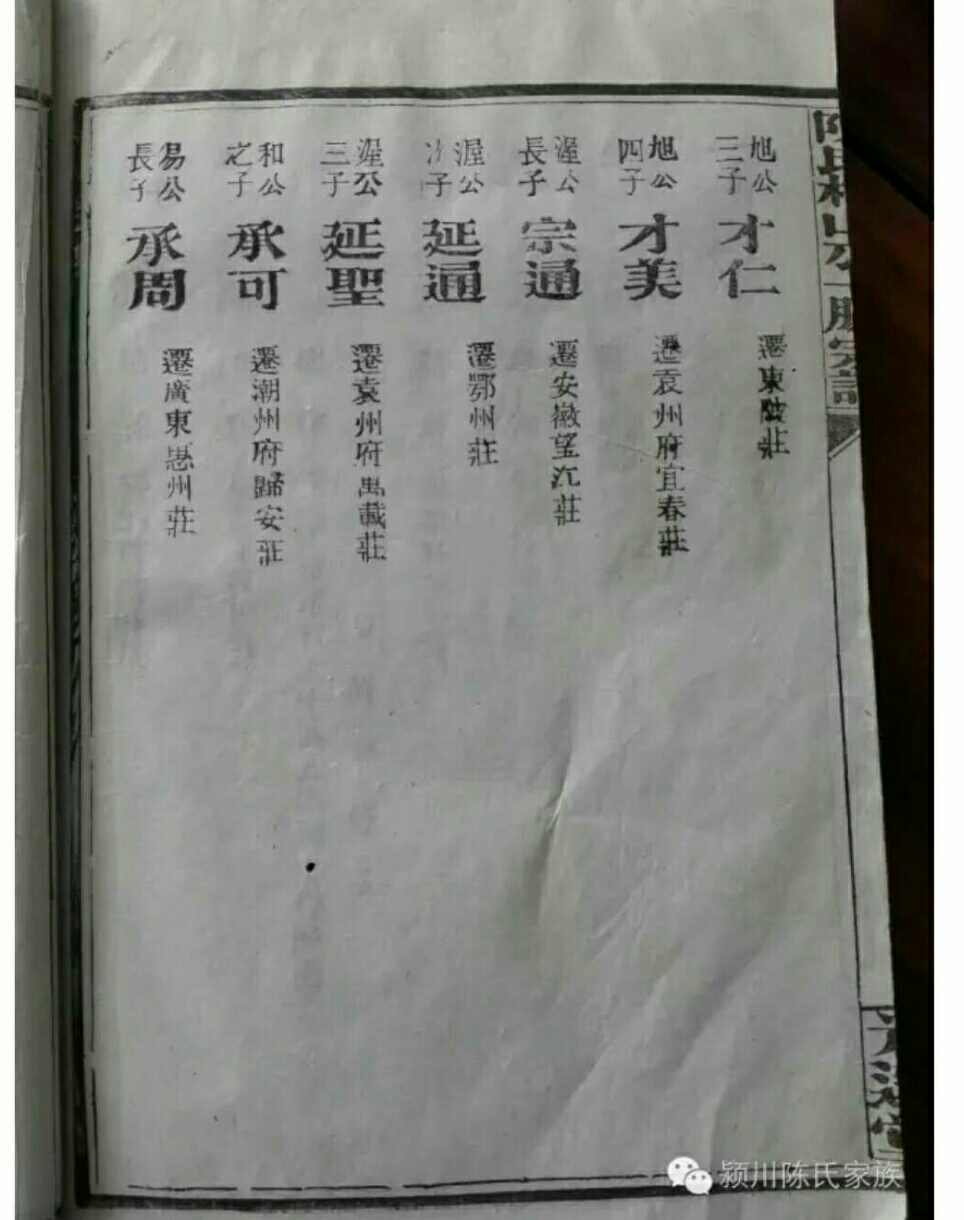 旭公三子 才仁 遷東陵莊
旭公四子 才美 遷袁州府宜春莊
渥公長子 宗通 遷安徽望江莊
渥公次子 延通 遷鄂州莊
渥公三子 延聖 遷袁州府萬載莊
和公之子 承可 遷潮州府歸安莊
易公長子 承周 遷廣東惠州莊
颍川陈氏家族